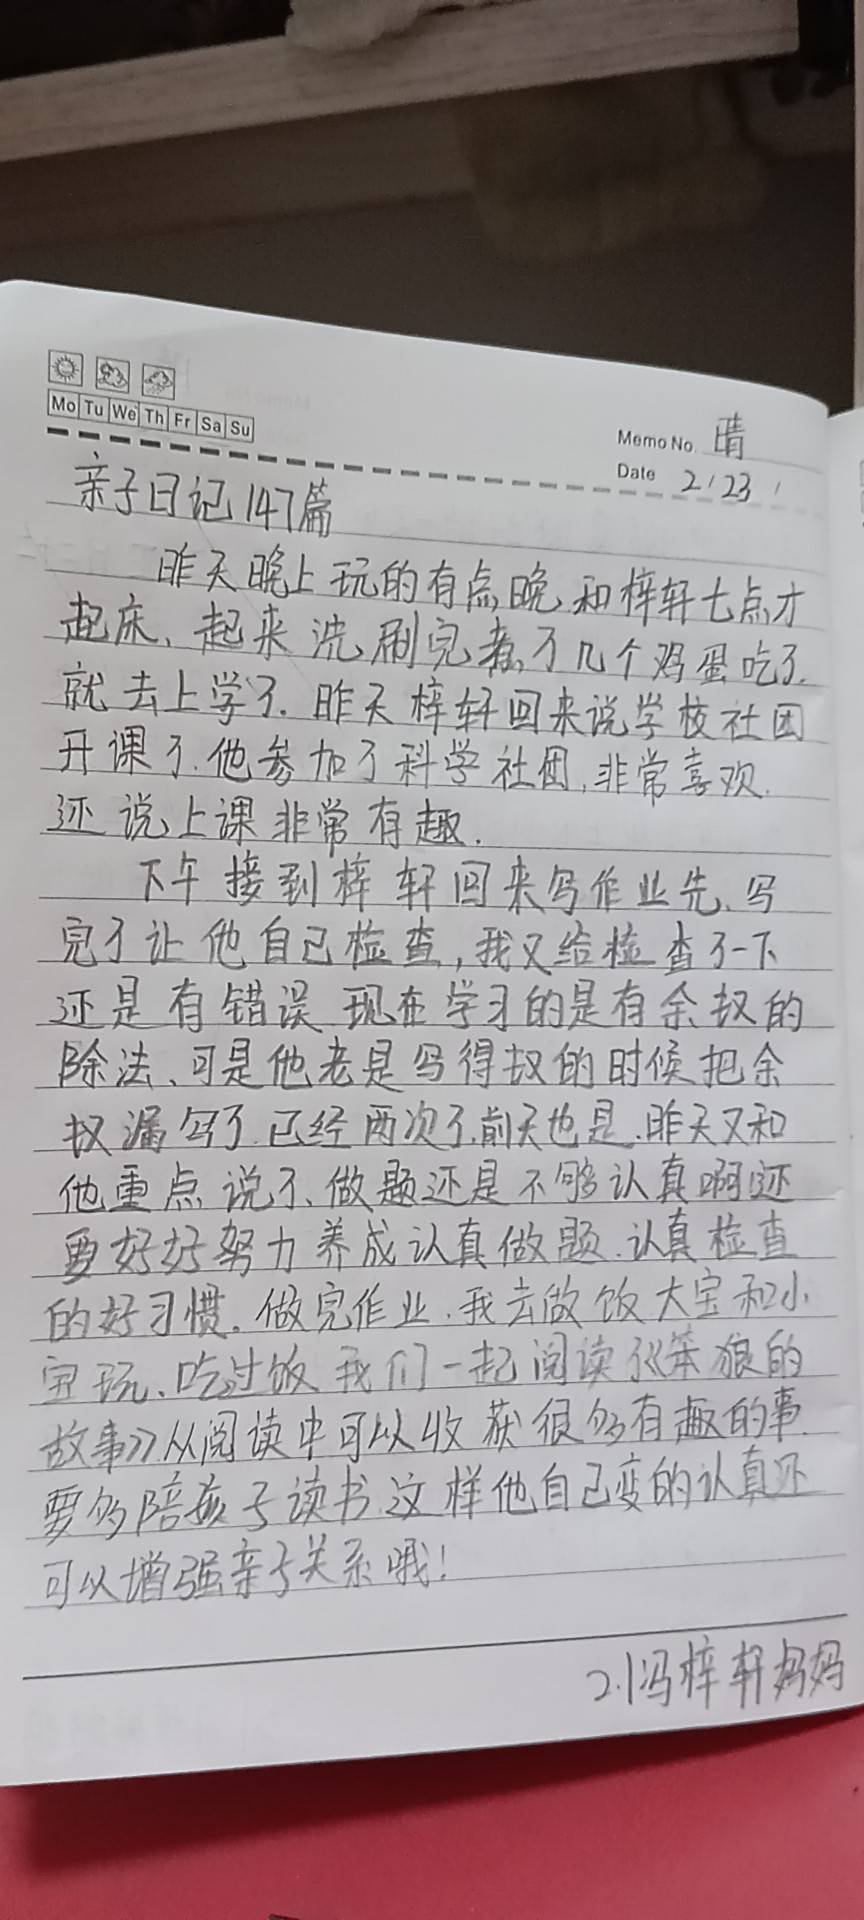 Mo Tu We Th Fr Sa Su
Memo No. 晴
Date 2/23
亲子日记147篇
昨天晚上玩的有点晚,和梓轩七点才
起床、起来洗刷完煮了几个鸡蛋吃了.
就去上学了.昨天梓轩回来说学校社团
开课了.他参加了科学社团,非常喜欢.
还说上课非常有趣.
下午接到梓轩回来写作业先、写
完了让他自己检查,我又给检查了一下
还是有错误 现在学习的是有余数的
除法、可是他老是写得数的时候把余
数漏写了.已经两次了.前天也是.昨天又和
他重点说了、做题还是不够认真啊!还
要好好努力养成认真做题.认真检查
的好习惯.做完作业.我去做饭大宝和小
宝玩、吃过饭我们一起阅读了《笨狼的
故事》从阅读中可以收获很多有趣的事.
要多陪孩子读书.这样他自己变的认真还
可以增强亲子关系哦!
2.1冯梓轩妈妈